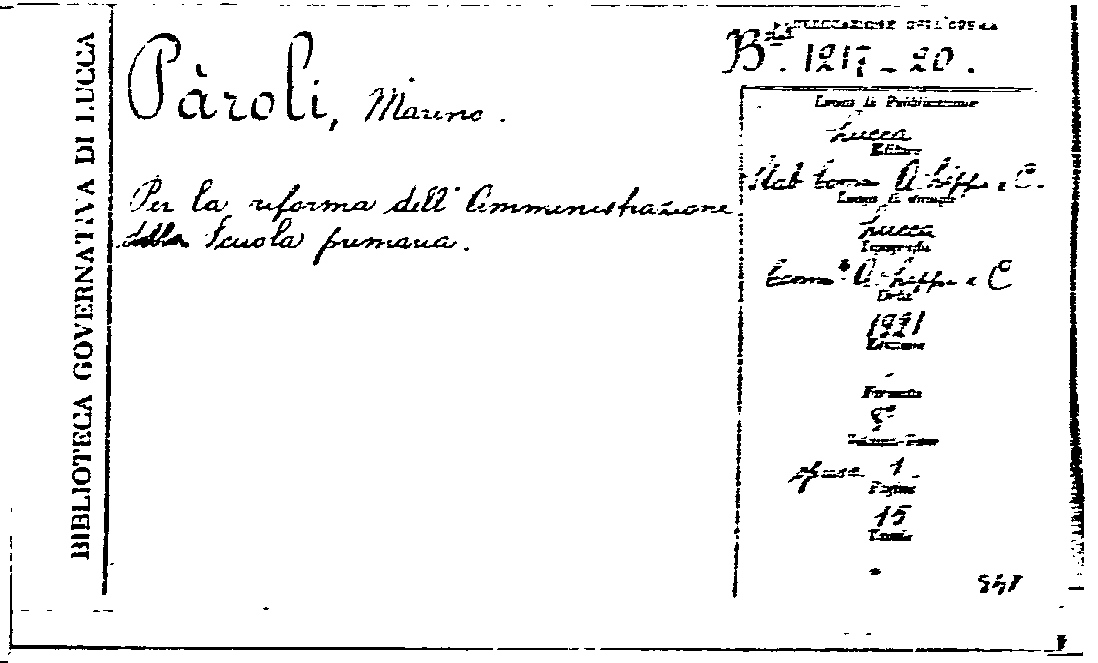 BIBLIOTECA GOVERNATIVA DI LUCCA
Pàroli, Marino.
Per la riforma dell'Amministrazione
della Scuola primaria.
COLLOCAZIONE DELL'OPERA
B. 1217-20.
Luogo di Pubblicazione
Lucca
Editore
Stab. A. Lippi e C.
Luogo di stampa
Lucca
Tipografia
A. Lippi e C
Data
1921
Edizione
-
Formato
8°
opusc. 1
Pagine
15
Tavole